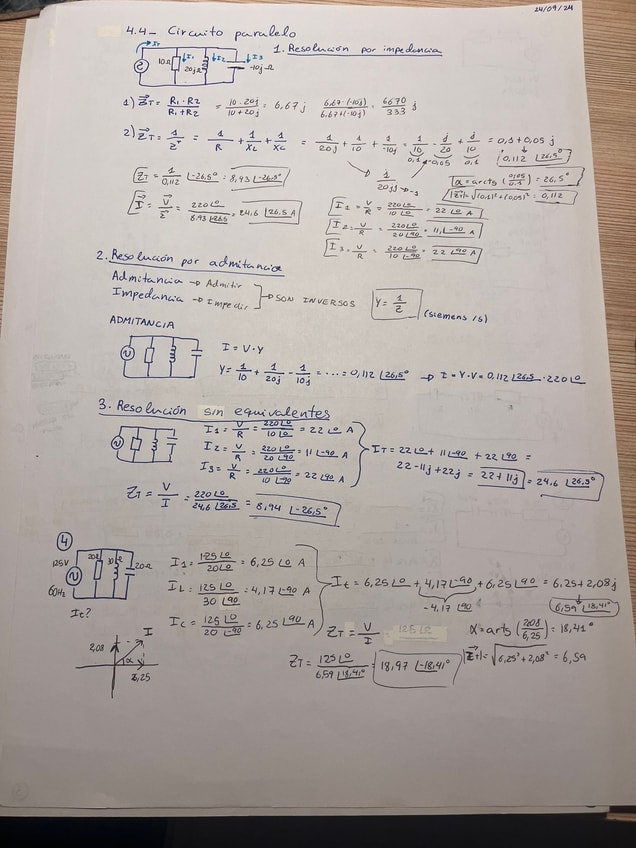 24/09/24
4.4- Circuito paralelo
1. Resolución por impedancia
IT 10Ω I1 20jΩ I2 I3 -10jΩ
1) ZT = R1·R2 / R1+R2 = 10·20j / 10+20j = 6,67j 6,67·(-10j) / 6,67+(-10j) = 6670/333 j
2) ZT = 1/Z* = 1/R + 1/XL + 1/XC = 1/20j + 1/10 + 1/-10j = 1/10 - j/20 + j/10 = 0,1+0,05j
0,1 -0,05 0,1
0,112 ∠26,5°
ZT = 1/0,112 ∠-26,5° = 8,93 ∠-26,5°
1/20j
α = arctg (0,05/0,1) = 26,5°
|ZT| = √(0,1)²+(0,05)² = 0,112
I = V/Z = 220∠0 / 8,93 ∠26,5 = 24,6 ∠26,5 A
I1 = V/R = 220∠0 / 10∠0 = 22∠0 A
I2 = V/R = 220∠0 / 20∠90 = 11∠-90 A
I3 = V/R = 220∠0 / 10∠-90 = 22∠90 A
2. Resolución por admitancia
Admitancia → Admitir
Impedancia → Impedir
SON INVERSOS Y = 1/Z (siemens /s)
ADMITANCIA
I = V·Y
Y = 1/10 + 1/20j - 1/10j = .... = 0,112 ∠26,5° → I = Y·V = 0,112 ∠26,5 · 220∠0
3. Resolución sin equivalentes
I1 = V/R = 220∠0 / 10∠0 = 22∠0 A
I2 = V/R = 220∠0 / 20∠90 = 11∠-90 A
I3 = V/R = 220∠0 / 10∠-90 = 22∠90 A
IT = 22∠0 + 11∠-90 + 22∠90 =
22-11j+22j = 22+11j = 24,6 ∠26,5°
ZT = V/I = 220∠0 / 24,6 ∠26,5 = 8,94 ∠-26,5°
4
125V 60Hz 20Ω 20Ω
It?
I1 = 125∠0 / 20∠0 = 6,25∠0 A
IL = 125∠0 / 30∠90 = 4,17∠-90 A
IC = 125∠0 / 20∠-90 = 6,25∠90 A
It = 6,25∠0 + 4,17∠-90 + 6,25∠90 = 6,25+2,08j
-4,17∠90
6,59 ∠18,41°
ZT = V/I
α = arctg (2,08/6,25) = 18,41°
ZT = 125∠0 / 6,59∠18,41° = 18,97 ∠-18,41°
|ZT| = √6,25²+2,08² = 6,59
2,08 I
α
6,25